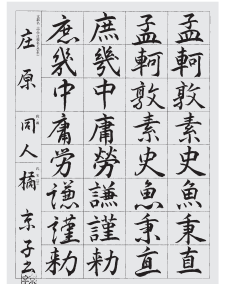 孟軻敦素史魚秉直
孟軻敦素史魚秉直
庶幾中庸勞謙謹勅
庶幾中庸労謙謹勅
庄原 同人 橘 京子